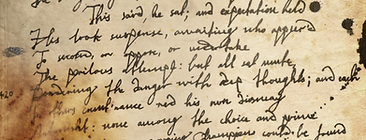 This said, he sat; and expectation held
His look suspense, awaiting who appear'd
To second, or oppose, or undertake
The perilous attempt: but all sat mute,
Pondering the danger with deep thoughts; and each
420 others count'nance read his own dismay
none among the choice and prime
Champions could be found